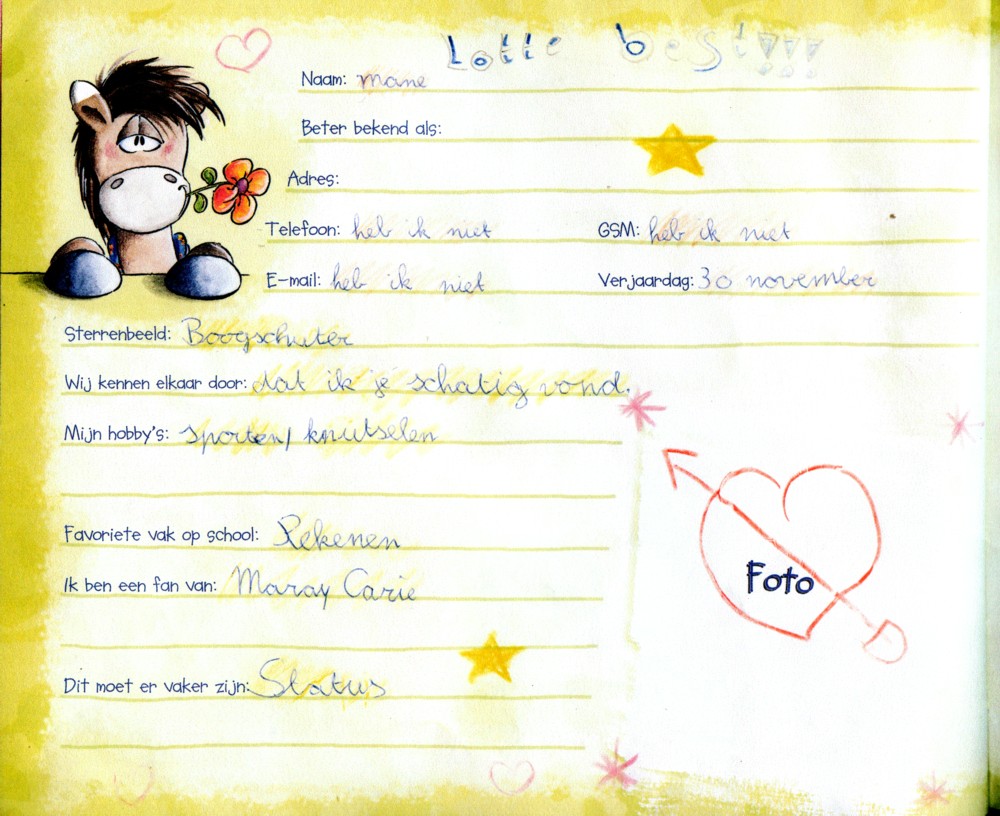 Lotte best!!!
Naam: mane
Beter bekend als:
Adres:
Telefoon: heb ik niet GSM: heb ik niet
E-mail: heb ik niet Verjaardag: 30 november
Sterrenbeeld: Boogschuter
Wij kennen elkaar door: dat ik je schatig vond.
Mijn hobby's: sporten/ knutselen
Favoriete vak op school: Rekenen
Ik ben een fan van: Maray Carie
Foto
Dit moet er vaker zijn: Slatus